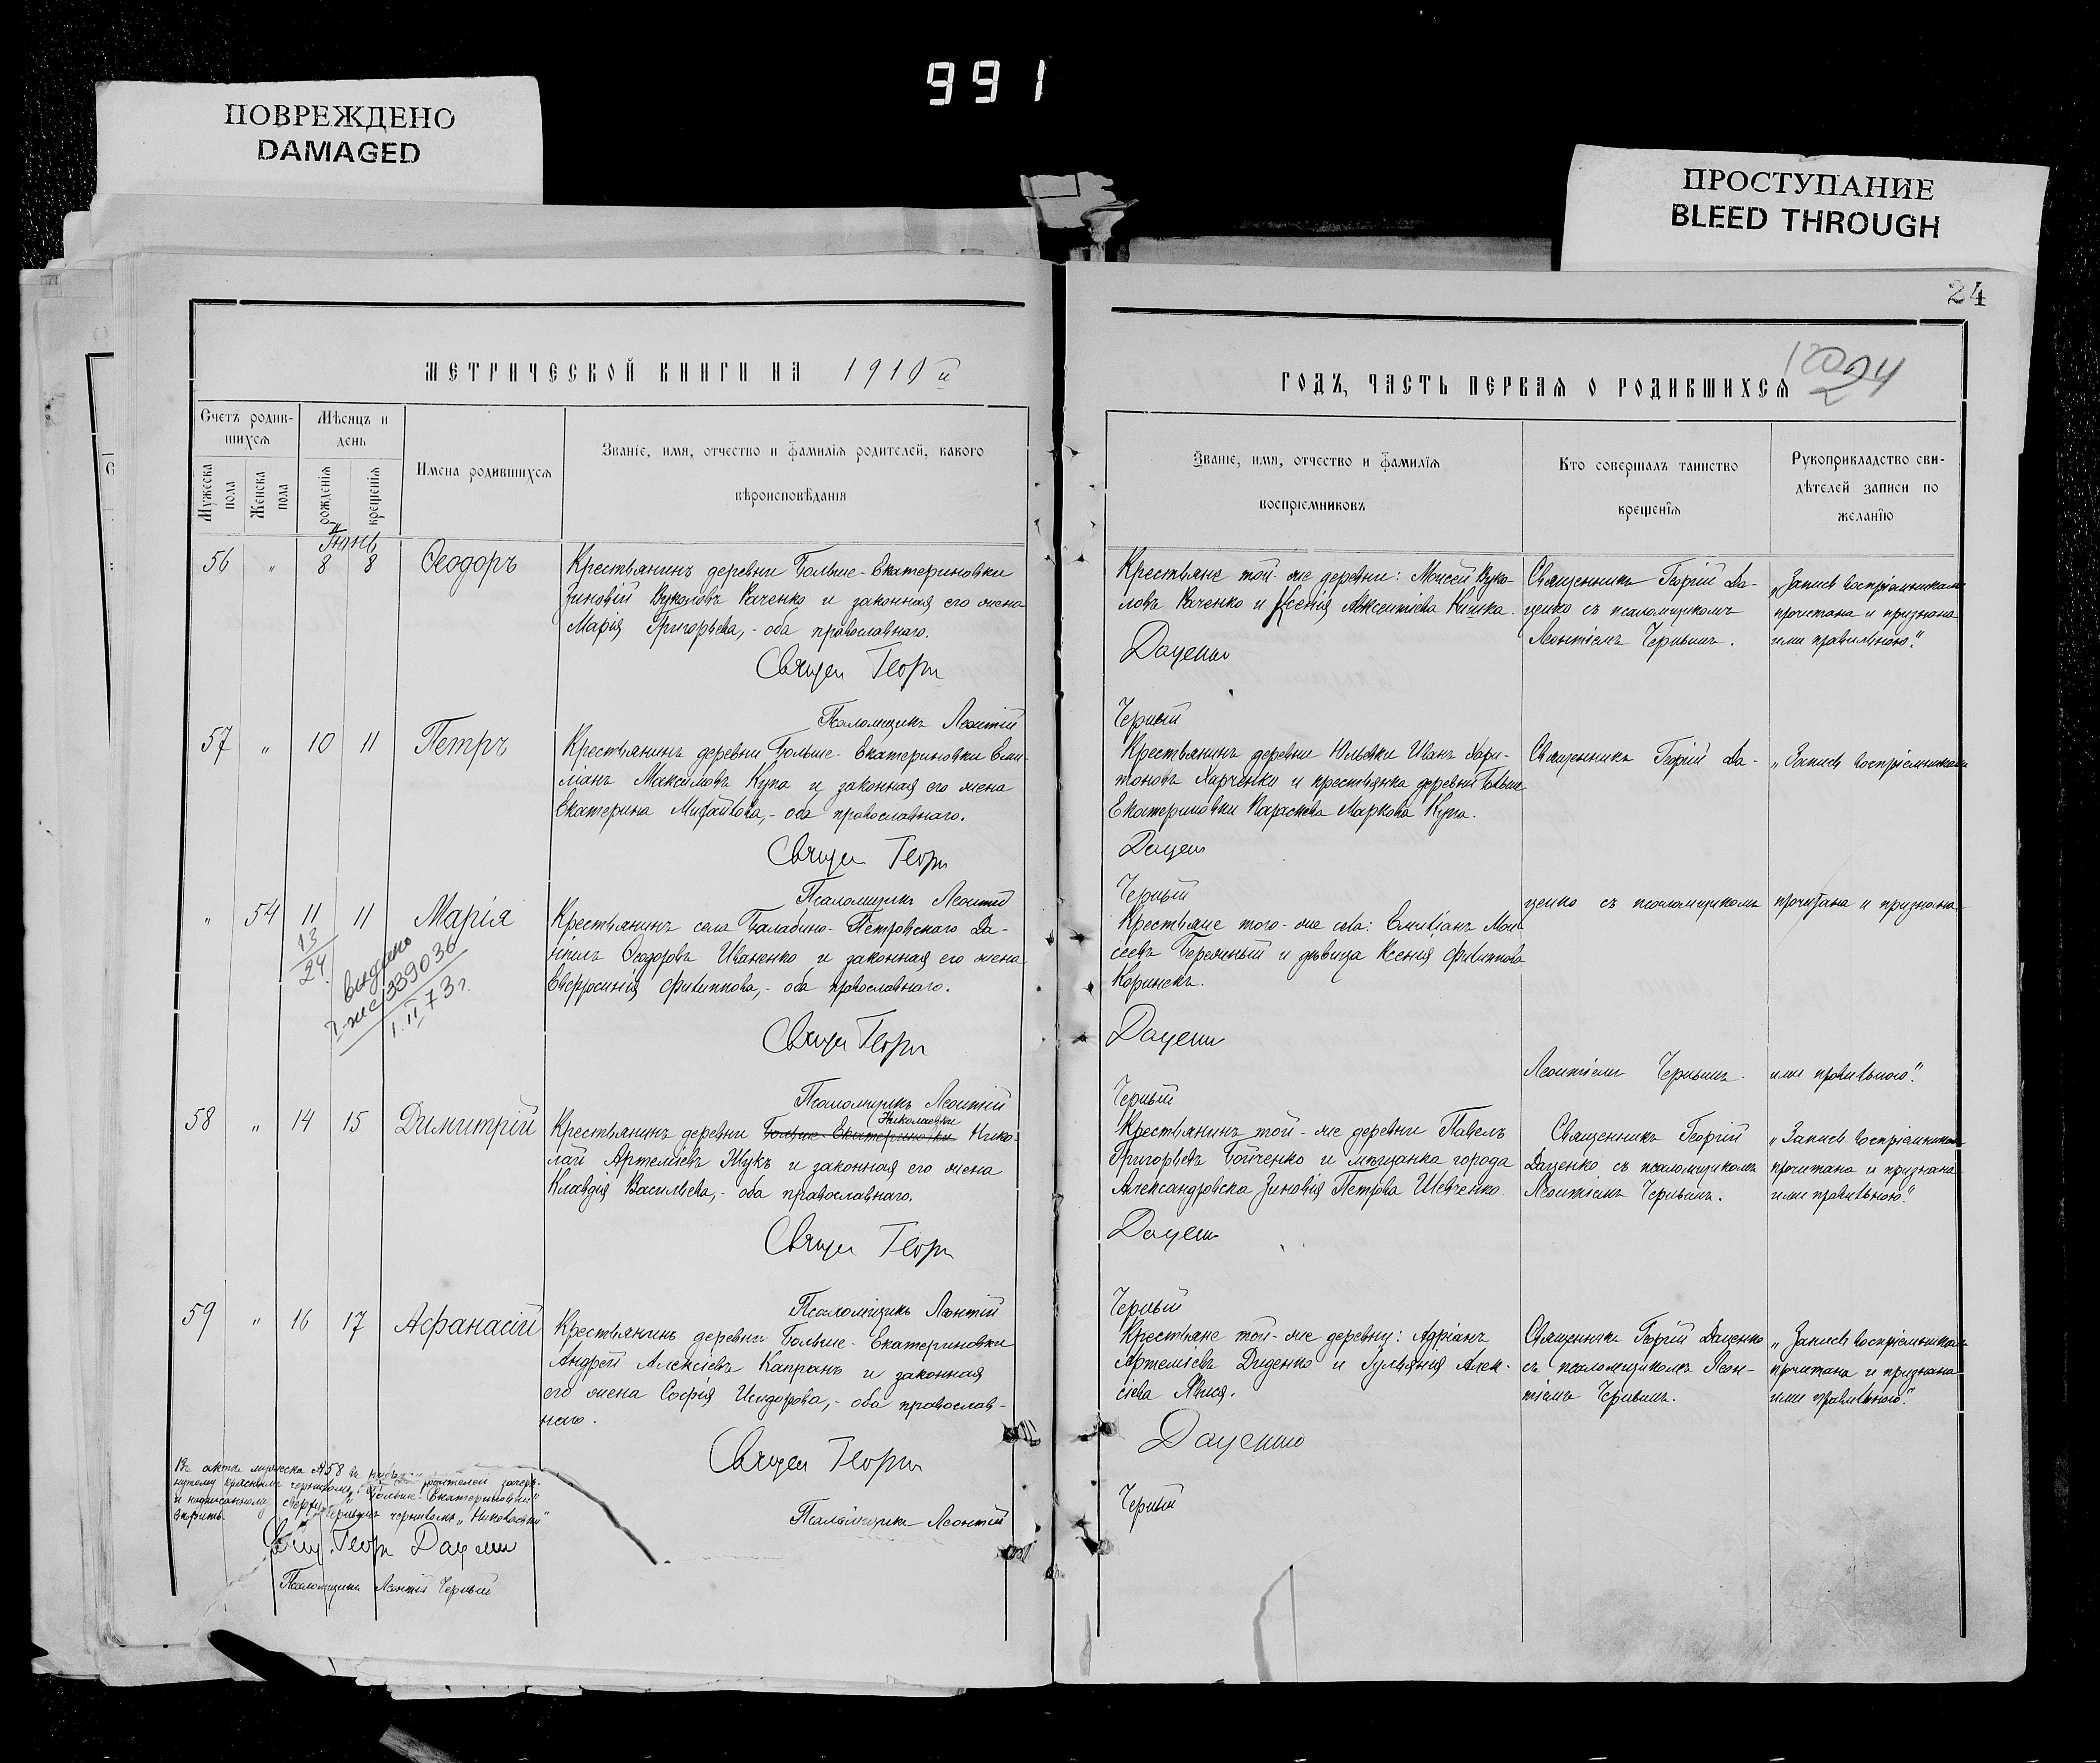 991
ПОВРЕЖДЕНО
DAMAGED
ПРОСТУПАНИЕ
BLEED THROUGH
24
МЕТРИЧЕСКОЙ КНИГИ НА 1910й
Счетъ родив-
шихся
Мѣсяцъ и
день
Имена родившихся
Званіе, имя, отчество и фамилія родителей, какого
вѣроисповѣданія
Мужеска пола
Женска пола
рожденія
крещенія
Іюнь
56 " 8 8 Ѳеодоръ
Крестьянинъ деревни Больше-Екатериновки
Зиновій Вуколовъ Раченко и законная его жена
Марія Григорьева,- оба православнаго.
Священ Георгі
Псаломщикъ Леонтій
57 " 10 11 Петръ
Крестьянинъ деревни Больше-Екатериновки Еми-
ліанъ Максимовъ Купа и законная его жена
Екатерина Михайлова,- оба православнаго.
Священ Георгі
Псаломщикъ Леонтій
" 54 11 11 Марія
13
24
выдано
339036
1.II.73г.
Крестьянинъ села Балабино-Петровскаго Да-
ніилъ Ѳеодоровъ Иваненко и законная его жена
Евфросинія Филиппова,- оба православнаго.
Священ Георгі
Псаломщикъ Леонтій
58 " 14 15 Димитрій
Николаевки
Крестьянинъ деревни Больше-Екатериновки Нико-
лай Артеміевъ Жукъ и законная его жена
Клавдія Васильева,- оба православнаго.
Священ Георгі
Псаломщикъ Леонтій
59 " 16 17 Аѳанасій
Крестьянинъ деревни Больше-Екатериновки
Андрей Алексіевъ Капранъ и законная
его жена Софія Исидорова,- оба православ-
наго.
Священ Георгі
Псаломщикъ Леонтій
Въ актѣ мужеска №58 въ родителей зачерк-
нутому краснымъ чернилом: "Больше-Екатериновки"
и надписанному сверху чернымъ чернилом "Николаевки"
вѣрить.
Свящ. Георг Даценко
Псаломщикъ Леонтій Черный
ГОДЪ, ЧАСТЬ ПЕРВАЯ О РОДИВШИХСЯ
24
Званіе, имя, отчество и фамилія
воспріемниковъ
Кто совершалъ таинство
крещенія
Рукоприкладство сви-
дѣтелей записи по
желанію
Крестьяне той-же деревни: Моисей Вуко-
ловъ Раченко и Ксенія Авксентіева Кишка.
Даценко
Черный
Священникъ Георгій Да-
ценко съ псаломщикомъ
Леонтіемъ Чернымъ.
„Запись воспріемниками
прочитана и признана
ими правильною."
Крестьянинъ деревни Юльевки Иванъ Хари-
тоновъ Харченко и крестьянка деревни Больше
Екатериновки Параскева Маркова Купа.
Даценко
Черный
Священникъ Георгій Да-
„Запись воспріемниками
Крестьяне того-же села: Емиліанъ Мои-
сеевъ Бережный и дѣвица Ксенія Филиппова
Коринекъ.
Даценко
Черный
ценко съ псаломщикомъ
Леонтіемъ Чернымъ.
прочитана и признана
ими правильною."
Крестьянинъ той-же деревни Павелъ
Григорьевъ Бойченко и мѣщанка города
Александровска Зиновія Петрова Шевченко.
Даценко
Черный
Священникъ Георгій
Даценко съ псаломщикомъ
Леонтіемъ Чернымъ.
„Запись воспріемниками
прочитана и признана
ими правильною."
Крестьяне той-же деревни: Адріанъ
Артеміевъ Диденко и Іульянія Алек-
сіева
Даценко
Черный
Священникъ Георгій Даценко
съ псаломщикомъ Леон-
тіемъ Чернымъ.
„Запись воспріемниками
прочитана и признана
ими правильною."